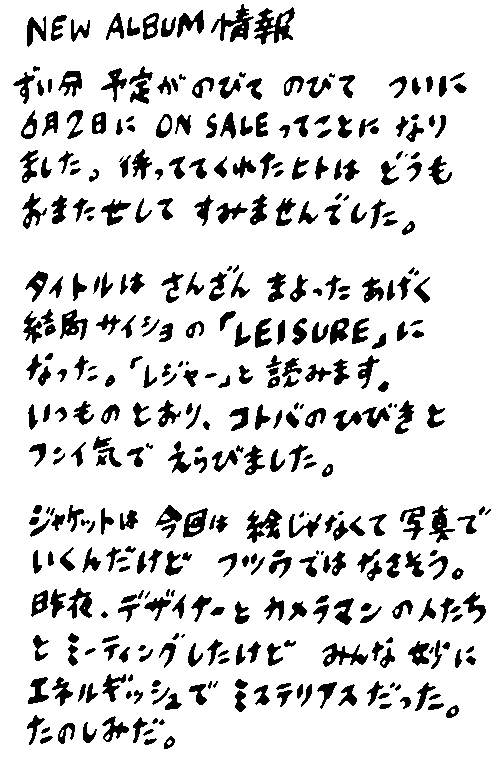 NEW ALBUM 情報
ずい分 予定が のびて のびて ついに
6月2日に ON SALE ってことに なり
ました。待っててくれたヒトは どうも
おまたせして すみませんでした。
タイトルは さんざん まよった あげく
結局 サイショの「LEISURE」に
なった。「レジャー」と 読みます。
いつもの とおり、コトバの ひびきと
フンイ気で えらびました。
ジャケットは 今回は 絵じゃなくて 写真で
いくんだけど フツウでは なさそう。
昨夜、デザイナーと カメラマン の人たち
と ミーティングしたけど みんな 妙に
エネルギッシュで ミステリアスだった。
たのしみだ。